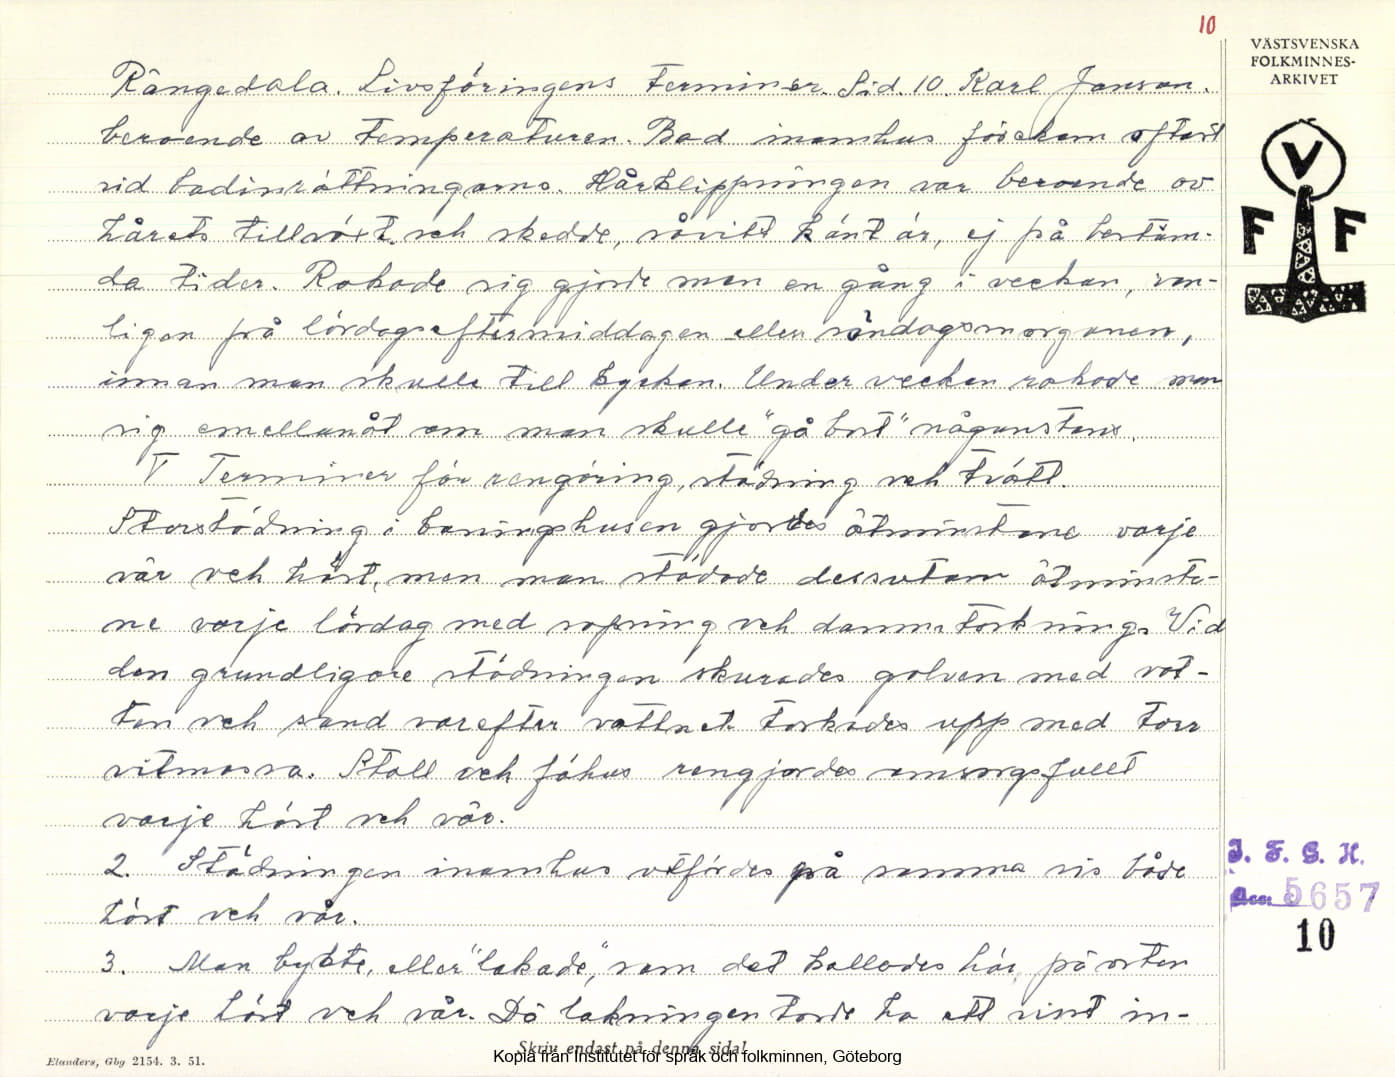 10
VÄSTSVENSKA
FOLKMINNES-
ARKIVET
V
F F
Rångedala. Livsföringens Terminer. Sid. 10. Karl Janson.
beroende av temperaturen. Bad inomhus förekom oftast
vid badinrättningarna. Hårklippningen var beroende av
hårets tillväxt och skedde, såvitt känt är, ej på bestäm-
da tider. Rakade sig gjorde man en gång i veckan, van-
ligen på lördagseftermiddagen eller söndagsmorgonen,
innan man skulle till kyrkan. Under veckan rakade man
sig emellanåt om man skulle "gå bort" någonstans.
V Terminer för rengöring, städning och tvätt.
Storstädning i boningshusen gjordes åtminstone varje
vår och höst, men man städade dessutom åtminsto-
ne varje lördag med sopning och dammtorkning. Vid
den grundligare städningen skurades golven med vat-
ten och sand varefter vattnet torkades upp med torr
vitmossa. Stall och fähus rengjordes omsorgsfullt
varje höst och vår.
2. Städningen inomhus utfördes på samma vis både
höst och vår.
3. Man bykte, eller "lakade", som det kallades här, på orten
varje höst och vår. Då lakningen torde ha ett visst in-
J. F. G. H.
Acc 5657
10
Skriv endast på denna sida!
Elanders, Gbg 2154. 3. 51.
Kopia från Institutet för språk och folkminnen, Göteborg